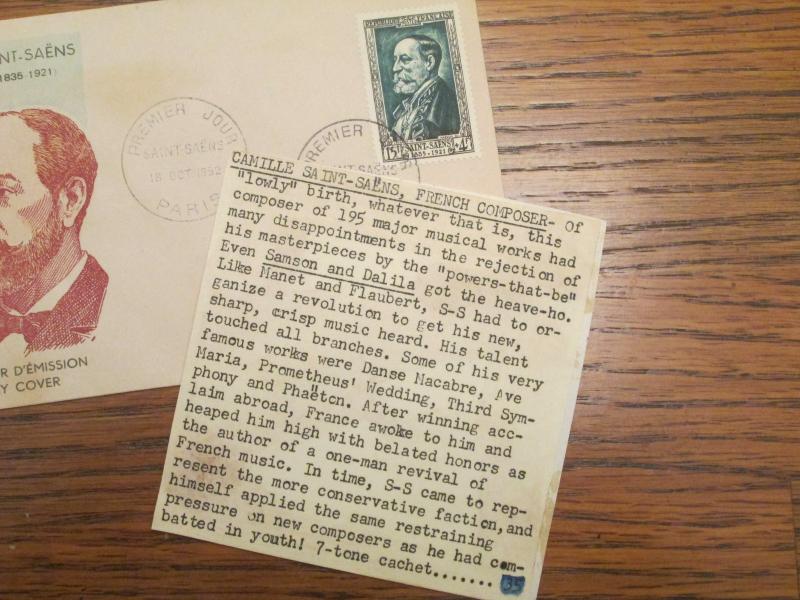 NT-SAËNS
1835-1921)
PREMIER JOUR
SAINT-SAËNS
18 OCT 1952
PARIS
PREMIER
REPUBLIQUE FRANÇAISE
15F SAINT-SAËNS +4F
1835-1921
R D'ÉMISSION
Y COVER
CAMILLE SAINT-SAËNS, FRENCH COMPOSER- Of
"lowly" birth, whatever that is, this
composer of 195 major musical works had
many disappointments in the rejection of
his masterpieces by the "powers-that-be"
Even Samson and Dalila got the heave-ho.
Like Manet and Flaubert, S-S had to or-
ganize a revolution to get his new,
sharp, crisp music heard. His talent
touched all branches. Some of his very
famous works were Danse Macabre, Ave
Maria, Prometheus' Wedding, Third Sym-
phony and Phaëton. After winning acc-
laim abroad, France awoke to him and
heaped him high with belated honors as
the author of a one-man revival of
French music. In time, S-S came to rep-
resent the more conservative faction, and
himself applied the same restraining
pressure on new composers as he had com-
batted in youth! 7-tone cachet....... 35